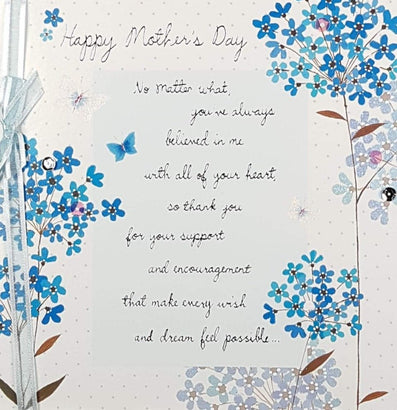 Happy Mother's Day
No matter what,
you've always
believed in me
with all of your heart,
so thank you
for your support
and encouragement
that make every wish
and dream feel possible...